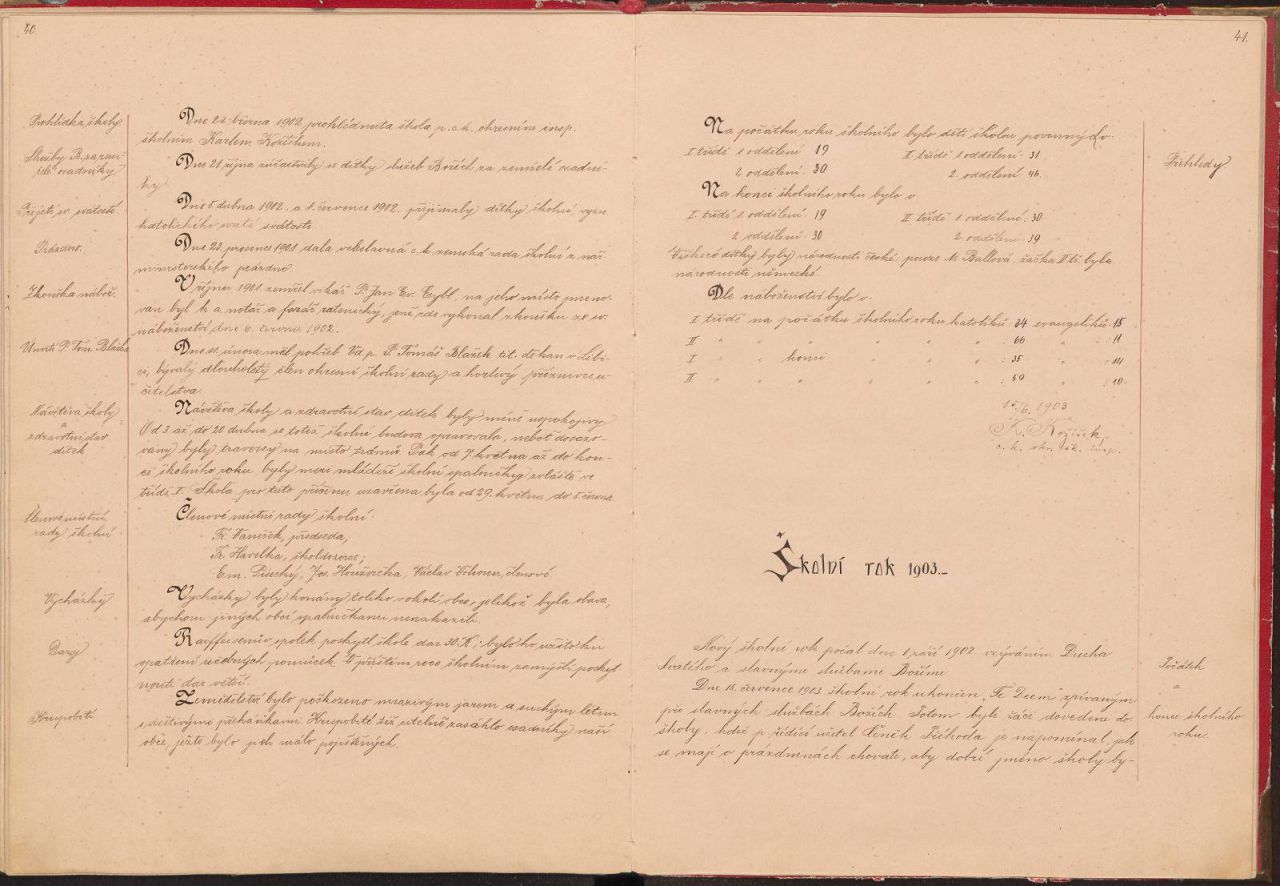 40.
Prohlídka školy.
Dne 22. března 1902. prohlédnuta škola p. c. k. okresním insp.
školním Karlem Košťálem.
Služby B. za zemř-
elé zádníky
Dne 21. října zúčastnily se dítky služeb Božích za zemřelé
Přijetí sv. svátostí
Dne 5. dubna 1902. a 1. července 1902. přijímaly dítky školní vyzn.
katolického svaté svátosti.
Prázdno.
Dne 23. prosince 1901. dala veleslavná c. k. zemská rada školní z nař.
ministerského prázdno.
Zkouška nábož.
V říjnu 1901. zemřel vikář P. Jan Ev. Cybl, na jeho místo jmeno-
ván byl k. a notář a farář, jenž zde vykonal zkoušku ze sv.
náboženství dne 6. června 1902.
Úmrtí P. Tom. Blažka
Dne 11. února měl pohřeb Vd. p. P. Tomáš Blažek tit. děkan v Libi-
ci, bývalý dlouholetý člen okresní školní rady a horlivý příznivec u-
čitelstva.
Návštěva školy
a
zdravotní stav
dítek
Návštěva školy a zdravotní stav dítek byly méně uspokojivy.
Od 3. až do 20. dubna se totiž školní budova opravovala, neboť dosazo-
vány byly traversy na místo trámů. Pak od 7. května až do kon-
ce školního roku byly mezi mládeží školní spalničky zvláště ve
třídě I. Škola pro tuto příčinu uzavřena byla od 29. května do 5. června.
Členové místní
rady školní
Členové místní rady školní:
Fr. Vaníček, předseda,
Fr. Havelka, školdozorce;
Em. Pěchý, Jos. Houžvička, Václav členové
Vycházky
Vycházky byly konány toliko v okolí obce, jelikož byla obava,
abychom jiných obcí spalničkami nenakazili.
Dary
Raiffeisenův spolek poskytl škole dar 30. K; bylo ho užito ku
opatření učebných pomůcek. V příštím roce školním zamýšlí poskyt-
nouti dar větší.
Krupobití
Zemědělství bylo poškozeno mrazivým jarem a suchým letem
s deštivými přeháňkami. Krupobití též citelně zasáhlo naší
obce, ježto bylo jich málo pojištěných.
41.
Přehledy
Na počátku roku školního bylo dětí školou povinných v:
I. třídě 1. oddělení 19 II. třídě 1. oddělení 31
2. oddělení 30 2. oddělení 46.
Na konci školního roku bylo v
I. třídě 1. oddělení 19 II. třídě 1. oddělení: 30
2. oddělení: 30 2. oddělení: 39
Veškeré dítky byly národnosti české, pouze M. Ballová, žačka II. tř. byla
národnosti německé.
Dle náboženství bylo v:
I. třídě na počátku školního roku katolíků: 34 evangelíků: 15
II. " " " " " " : 66 " : 11
I. " " konci " " " : 35 " : 14
II. " " " " " " : 59 " : 10
15/6. 1903
K. Košťál,
c. k. okr. šk. insp.
Školní rok 1903.-
Počátek
a
konec školního
roku.
Nový školní rok počal dne 1. září 1902. vzýváním Ducha
Svatého a slavnými službami Božími.
Dne 15. července 1903. školní rok ukončen „Te Deem" zpívaným
při slavných službách Božích. Potom byli žáci dovedeni do
školy, kdež p. řídící učitel Čeněk Příhoda je napomínal, jak
se mají o prázdninách chovati, aby dobré jméno školy by-